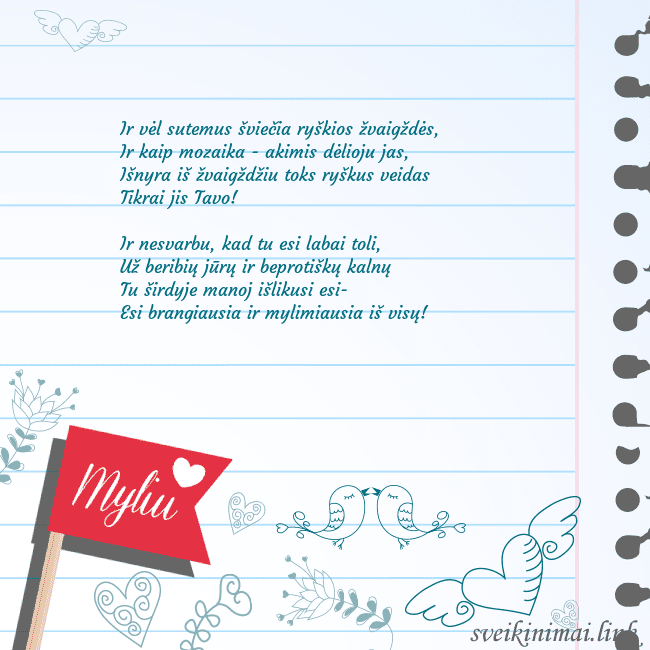 Ir vėl sutemus šviečia ryškios žvaigždės,
Ir kaip mozaika - akimis dėlioju jas,
Išnyra iš žvaigždžiu toks ryškus veidas
Tikrai jis Tavo!
Ir nesvarbu, kad tu esi labai toli,
Už beribių jūrų ir beprotiškų kalnų
Tu širdyje manoj išlikusi esi-
Esi brangiausia ir mylimiausia iš visų!
Myliu
sveikinimai.link